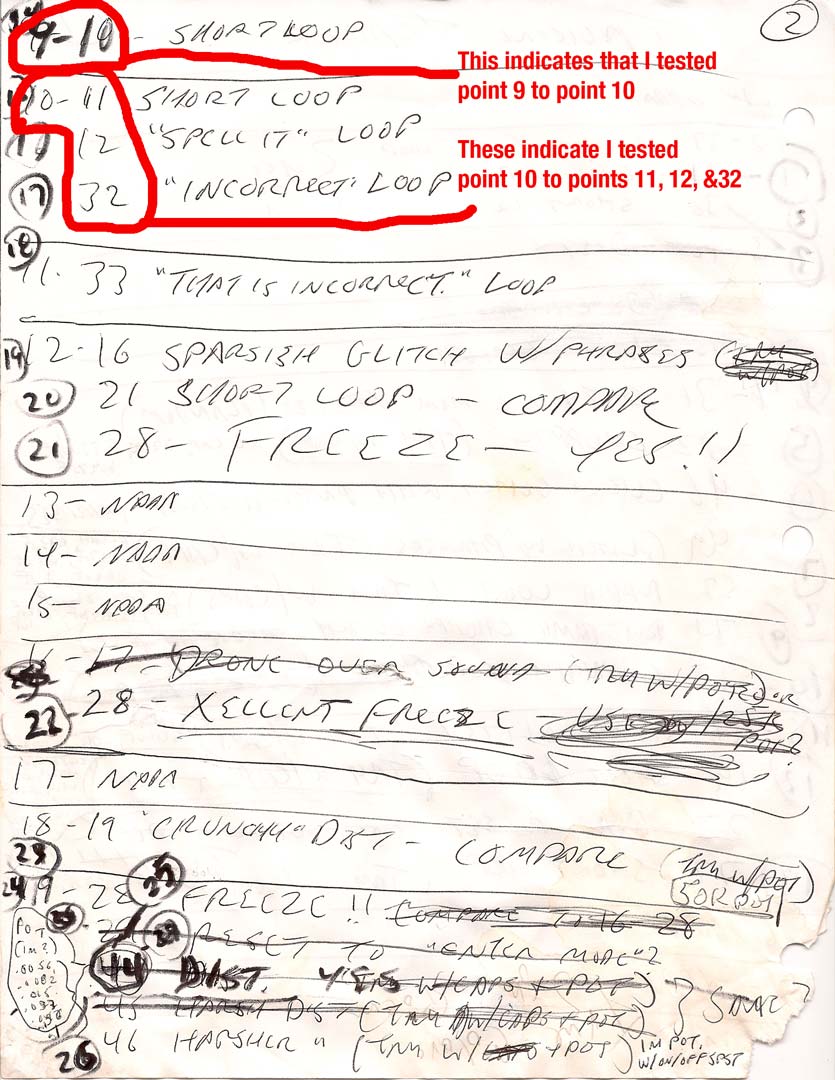 2
14
9-10 - SHORT LOOP
This indicates that I tested
point 9 to point 10
10-11 SHORT LOOP
12 "SPELL IT" LOOP
These indicate I tested
point 10 to points 11, 12, &32
17 32 "INCORRECT" LOOP
18
11-33 "THAT IS INCORRECT." LOOP
19 12-16 SPARSISH GLITCH W/PHRASES
20 21 SHORT LOOP - COMPARE
21 28 - FREEZE - YES!!
13 - NADA
14 - NADA
15 - NADA
16 - 17 - DRONE OVER SOUND (TRY W/POTED) OR
22 28 - XELLENT FREEZE - USE W/25K
POT?
17 - NADA
18-19 "CRUNCHY" DIST - COMPARE (TRY W/POT)
23
50R POT
24 19-28 27 FREEZE!! COMPARE TO 16-28
25 29 RESET TO "ENTER MODE"?
POT
(1M?)
.0056
.0082
.015
44 DIST. YES (TRY W/CAPS + POT)
45 HARSH DIST (TRY W/CAPS + POT) } SAME?
26 46 HARSHER " (TRY W/CAPS + POT) 1M POT.
W/ON/OFF SPST